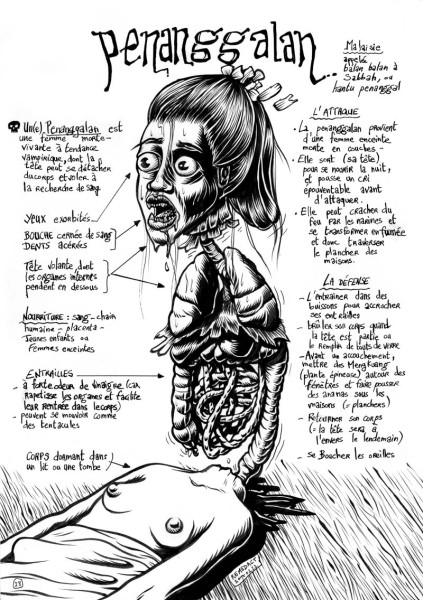 Penanggalan...
Malaisie
appelé
balan balan à
Sabbah, ou
hantu penanggal
Un(e) Penanggalan est
une femme morte-
vivante à tendance
vampirique, dont la
tête peut se détacher
du corps et voler à
la recherche de sang.
YEUX exorbités
BOUCHE cernée de sang
DENTS acérées
Tête volante, dont
les organes internes
pendent en dessous
NOURRITURE : sang - chair
humaine - placenta -
Jeunes enfants ou
femmes enceintes
ENTRAILLES
- à forte odeur de vinaigre (car
rapetisse les organes et facilite
leur rentrée dans le corps)
- peuvent se mouvoir comme
des tentacules
CORPS dormant dans
un lit ou une tombe
L'ATTAQUE
• La penanggalan provient
d'une femme enceinte
morte en couches -
• Elle sort (sa tête)
pour se nourrir la nuit,
et pousse un cri
épouvantable avant
d'attaquer.
• Elle peut cracher du
feu par les narines et
se transformer en fumée
et donc traverser
le plancher des
maisons.
LA DÉFENSE
- L'entrainer dans des
buissons pour accrocher
ses entrailles
- brûler son corps quand
la tête est partie ou
le remplir de bouts de verre
- Avant un accouchement,
mettre des MengKuang
(plante épineuse) autour des
fenêtres et faire pousser
des ananas sous les
maisons (= planchers)
- Retourner son corps
(= la tête sera à
l'envers le lendemain)
- se Boucher les oreilles